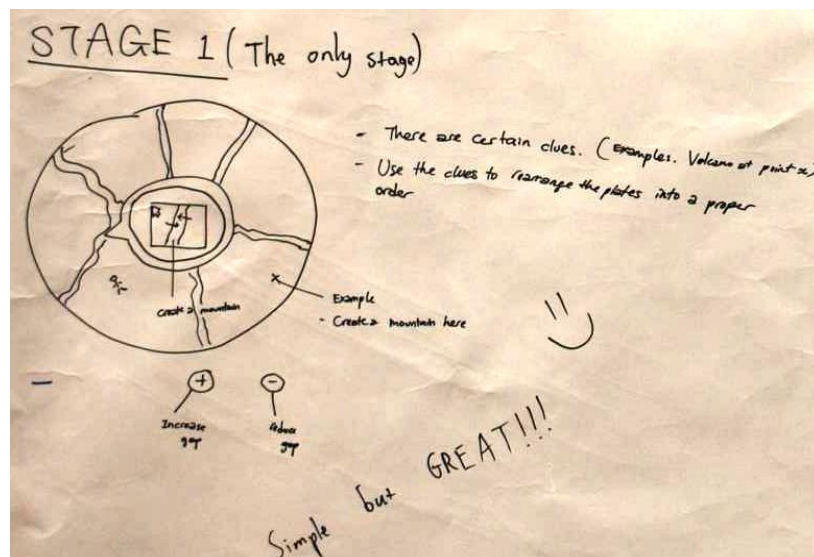 STAGE 1 (The only stage)
- There are certain clues. (Examples. Volcano at point x)
- Use the clues to rearrange the plates into a proper
order
Create a mountain
x
Example
- Create a mountain here
+
-
Increase
gap
Reduce
gap
Simple but GREAT!!!